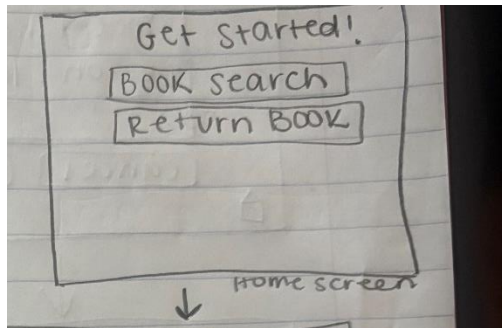 Get started!
BOOK search
Return BOOK
Home screen